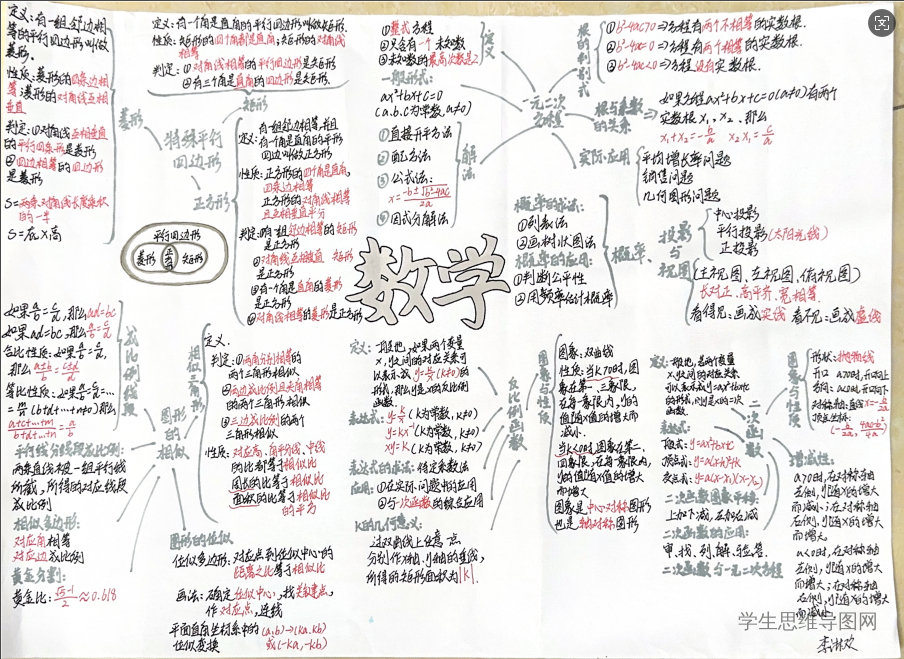 定义:有一组邻边相
等的平行四边形叫做
菱形.
性质:菱形的四条边相
等;菱形的对角线互相
垂直
判定:①对角线互相垂直
的平行四边形是菱形
②四边相等的四边形
是菱形
S=两条对角线长度乘积
的一半
S=底×高
菱形
定义:有一个角是直角的平行四边形叫做矩形.
性质:矩形的四个角都是直角;矩形的对角线
相等
判定:①对角线相等的平行四边形是矩形
②有三个角是直角的四边形是矩形.
矩形
特殊平行
四边形
正方形
有一组邻边相等,并且
定义:有一个角是直角的平行
四边叫做正方形
性质:正方形的四个角是直角,
四条边相等
正方形的对角线相等
且互相垂直平分
判定:①有一组邻边相等的矩形
是正方形
②对角线互相垂直 矩形
是正方形
③有一个角是直角的菱形
是正方形
④对角线相等的菱形是正方形
平行四边形
菱形
正方形
矩形
数学
①整式方程
②只含有一个未知数
③未知数的最高次数是2
定义
一般形式:
ax²+bx+c=0
(a.b.c为常数,a≠0)
①直接开平方法
②配方法
③公式法:
x=-b±√b²-4ac/2a
④因式分解法
解法
一元二次
方程
根的判别式
①b²-4ac>0⇒方程有两个不相等的实数根.
②b²-4ac=0⇒方程有两个相等的实数根.
③b²-4ac<0⇒方程没有实数根.
根与系数
的关系
如果方程ax²+bx+c=0(a≠0)有两个
实数根x₁、x₂、那么
x₁+x₂=-b/a x₂x₁=c/a
实际应用
平均增长率问题
销售问题
几何图形问题
概率的求法:
①列表法
②画树状图法
概率的应用:
①判断公平性
②用频率估计概率
概率
投影
与
视图
中心投影
平行投影(太阳光线)
正投影
(主视图、左视图、俯视图)
长对正、高平齐、宽相等
看得见:画成实线 看不见:画成虚线
如果a/b=c/d,那么ad=bc
如果ad=bc,那么a/b=c/d
合比性质:如果a/b=c/d,
那么a±b/b=c±d/d
等比性质:如果a/b=c/d=…
=m/n(b+d+…+n≠0)那么
a+c+…+m/b+d+…+n=a/b
成比例线段
平行线分线段成比例:
两条直线被一组平行线
所截,所得的对应线段
成比例
相似多边形:
对应角相等
对应边成比例
黄金分割:
黄金比:√5-1/2≈0.618
图形的
相似
相似三角形
定义.
判定:①两角分别相等的
两个三角形相似
②两边成比例且夹角相等
的两个三角形相似
③三边成比例的两个
三角形相似
性质:对应高、角平分线、中线
的比都等于相似比
周长的比等于相似比
面积的比等于相似比
的平方
图形的位似
位似多边形:对应点到位似中心的
距离之比等于相似比
画法:确定位似中心,找关键点,
作对应点,连线
平面直角坐标系中的(a,b)→(ka,kb)
位似变换 或(-ka,-kb)
定义:一般地,如果两个变量
x,y之间的对应关系可
以表示成y=k/x(k≠0)的
形式,那么y是x的反比例
函数
表达式:y=k/x(k为常数,k≠0)
y=kx⁻¹(k为常数,k≠0)
xy=k(k为常数,k≠0)
表达式的求法:待定系数法
应用:①在实际问题中的应用
②与一次函数的综合应用
k的几何意义:
过双曲线上任意一点
分别作x轴,y轴的垂线,
所得的矩形面积为|k|.
反比例函数
图象与性质
图象:双曲线
性质:当k>0时,图
象在第一、三象限,
在每一象限内,y的
值随x值的增大而
减小.
当k<0时,图象在第二、
四象限,在每象限内,
y的值随x值的增大
而增大
图象是中心对称图形
也是轴对称图形
定义:一般地,若两个变量
x,y之间的对应关系
可以表示成y=ax²+bx+c
的形式,则y是x的二次
函数
表达式:
一般式:y=ax²+bx+c
顶点式:y=a(x-h)²+k
交点式:y=a(x-x₁)(x-x₂)
二次函数图象平移:
上加下减,左加右减
二次函数的应用:
审、找、列、解、与应答.
二次函数与一元二次方程
二次函数
图象与性质
形状:抛物线
开口 a>0时,开口向上
方向:a<0时,开口向下
对称轴:直线x=-b/2a
顶点坐标:
(-b/2a,4ac-b²/4a)
增减性:
a>0时,在对称轴
左侧,y随x的增大
而减小;在对称轴
右侧,y随x的增大
而增大.
a<0时,在对称轴
左侧,y随x的增大
而增大;在对称轴
右侧,y随x的增大
而减小
学生思维导图网
李湘欢